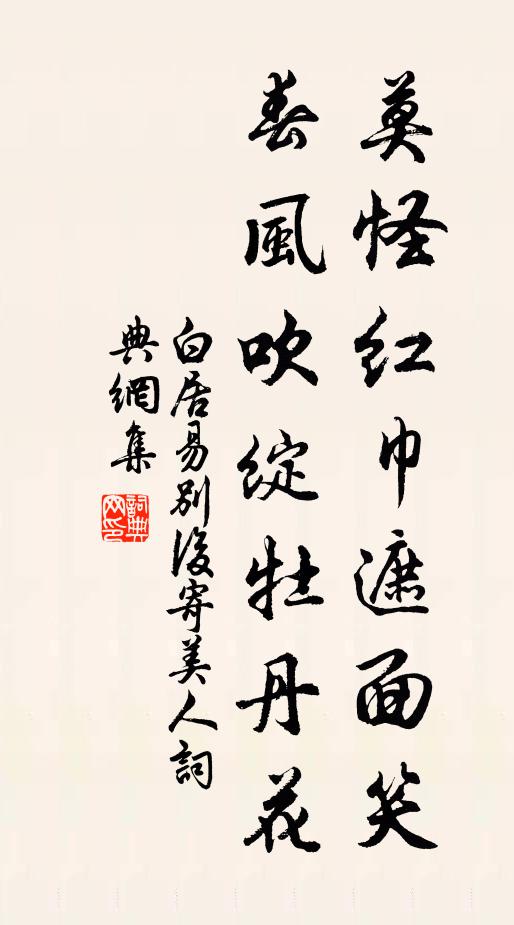 莫怪紅巾遮面笑
春風吹綻牡丹花
白居易別後寄美人詞
典網集
詞典網印